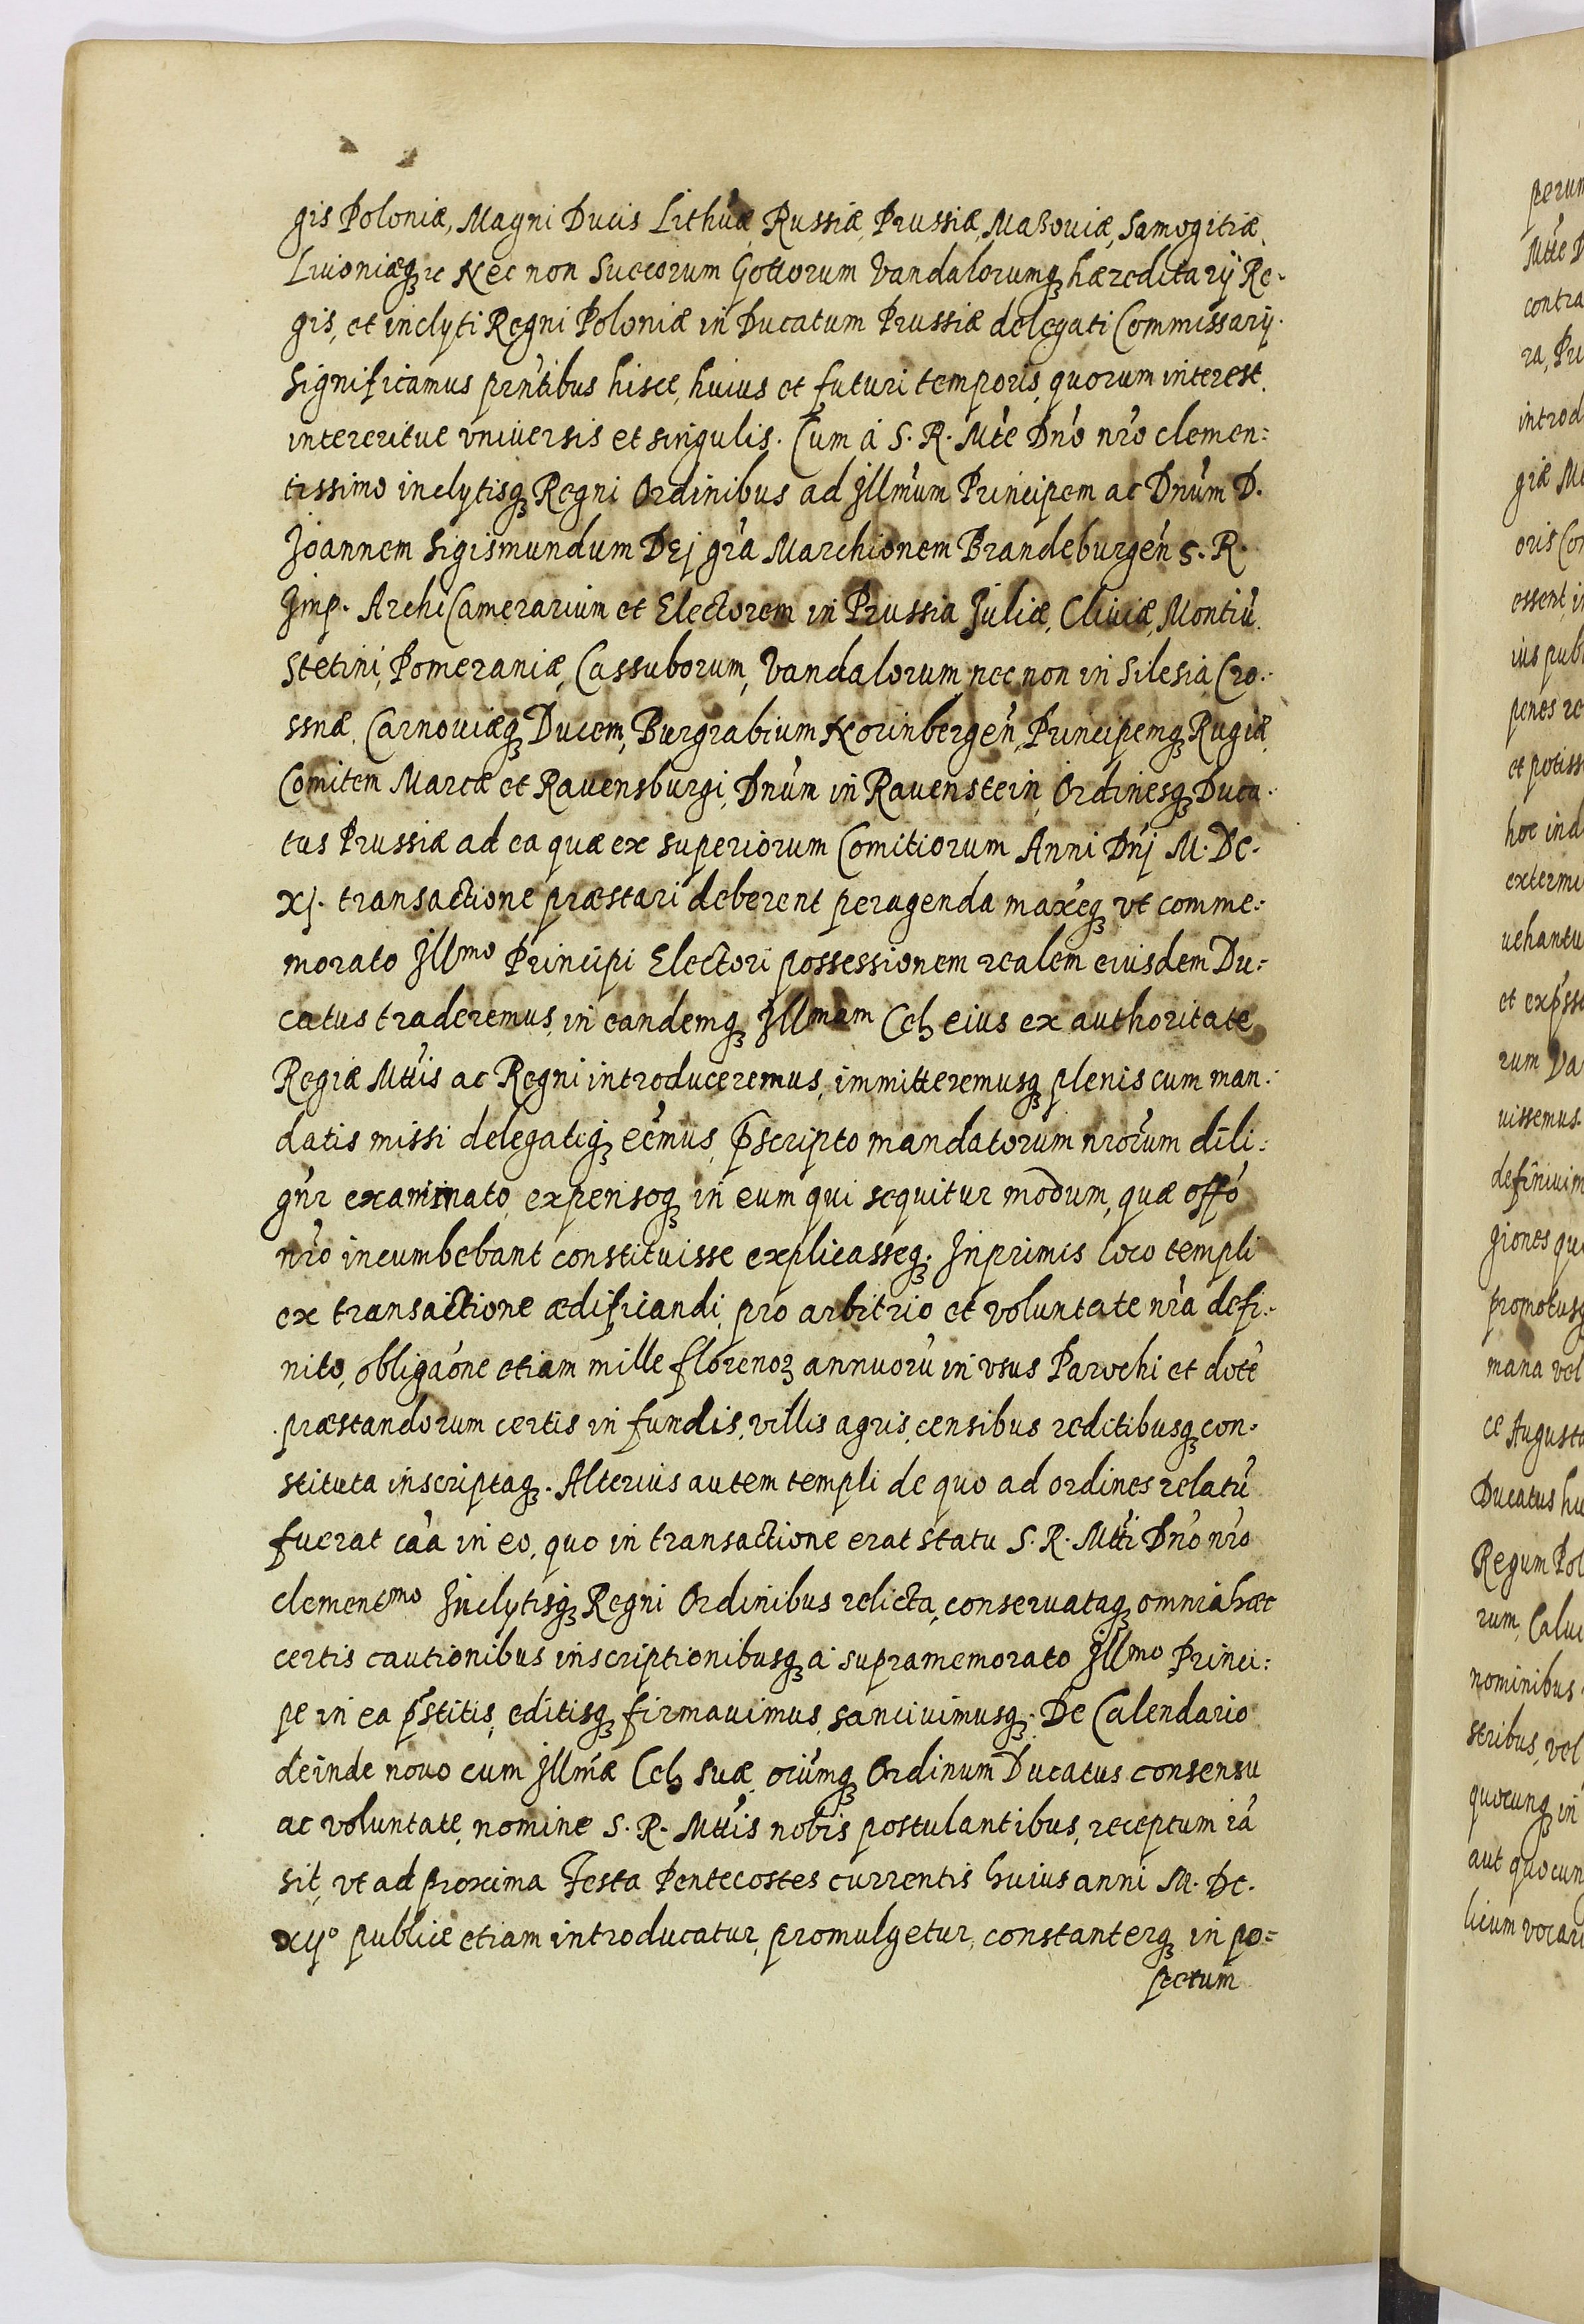 gis Poloniæ, Magni Ducis Lithuæ, Russiæ, Prussiæ, Masouiæ, Samogitiæ,
Liuoniæqꝫ ꝛc Nec non Suecorum Gottorum Vandalorumqꝫ hæreditarij Re-
gis, et inclyti Regni Poloniæ in Ducatum Prussiæ delegati Commissarij.
Significamus prñtibus hisce, huius et futuri temporis, quorum interest,
intereritue vniuersis et singulis. Cum à S. R. Mte Dño nro clemen:
tissimo inclytisqꝫ Regni Ordinibus ad Illmum Principem ac Dnum D.
Joannem Sigismundum Dej gra Marchionem Brandeburgen S. R.
Imp. ArchiCamerarium et Electorem in Prussia Juliæ, Cliuiæ, Montiu,
Stetini, Pomeraniæ, Cassuborum, Vandalorum, nec non in Silesia Cro:
ssnæ, Carnouiæqꝫ Ducem, Burgrabium Norinbergen, Principemqꝫ Rugiæ,
Comitem Marcæ et Rauensburgi, Dnum in Rauenstein, Ordinesqꝫ Duca-
tus Prussiæ ad ea quæ ex superiorum Comitiorum Anni Dnj M. DC.
xj. transactione præstari deberent peragenda maxeqꝫ vt comme:
morato Illmo Principi Electori possessionem realem eiusdem Du:
catus traderemus, in eandemqꝫ Illmam Celꝫ eius ex authoritate
Regiæ Mttis ac Regni introduceremus, immitteremusqꝫ plenis cum man:
datis missi delegatiqꝫ eemus, pscripto mandatorum nrorum dili:
gnr examinato, expensoqꝫ in eum qui sequitur modum, quæ offo
nro incumbebant constituisse explicasseqꝫ. Inprimis loco templi
ex transactione ædificandi, pro arbitrio et voluntate nra defi:
nito, obligaone etiam mille florenoꝝ annuoru in vsus Parochi et dote
præstandorum certis in fundis, villis agris, censibus reditibusqꝫ con-
stituta inscriptaqꝫ. Alterius autem templi de quo ad ordines relatu
fuerat caa in eo, quo in transactione erat statu S. R. Mtti Dno nro
clementmo Inclytisqꝫ Regni Ordinibus relicta, conseruataqꝫ omnia hæc
certis cautionibus inscriptionibusqꝫ a supramemorato Illmo Princi:
pe in ea pstitis, editisqꝫ firmauimus, sanciuimusqꝫ. De Calendario
deinde nouo cum Illmæ Celꝫ suæ, oiumqꝫ Ordinum Ducatus consensu
ac voluntate, nomine S. R. Mttis nobis postulantibus, receptum ia
sit, vt ad proxima Festa Pentecostes currentis huius anni M. DC.
xijo publice etiam introducatur, promulgetur, constanterqꝫ in po:
pectum
perum
Mtte D
contra
ra, Pru
introd
giæ Mt
oris Co
essent, in
ius publ
penes re
et potiss
hoc ind
extermi
uehantu
et expsse
rum Va
uissemus.
definiuim
giones qu
promotusqꝫ
mana vel
ce Augusta
Ducatus hu
Regum Pol
rum, Calui
nominibus
stribus, vel
quocunqꝫ in
aut quocun
licum vocari